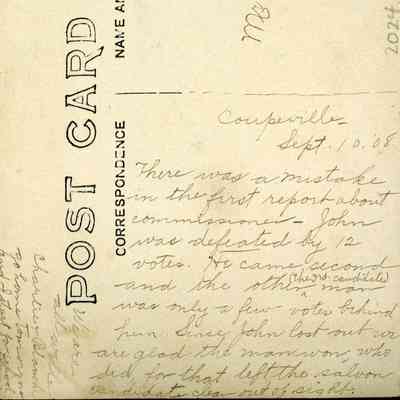 POST CARD
CORRESPONDENCE
NAME A
2024
Coupeville-
Sept. 10. '08
There was a mistake
in the first report about
commissioner - John
was defeated by 12
votes. He came second
(the rep. candidate)
and the other man
was only a few votes behind
him. Since John lost out we
are glad the man won, who
did, for that left the saloon
candidate clear out of sight.